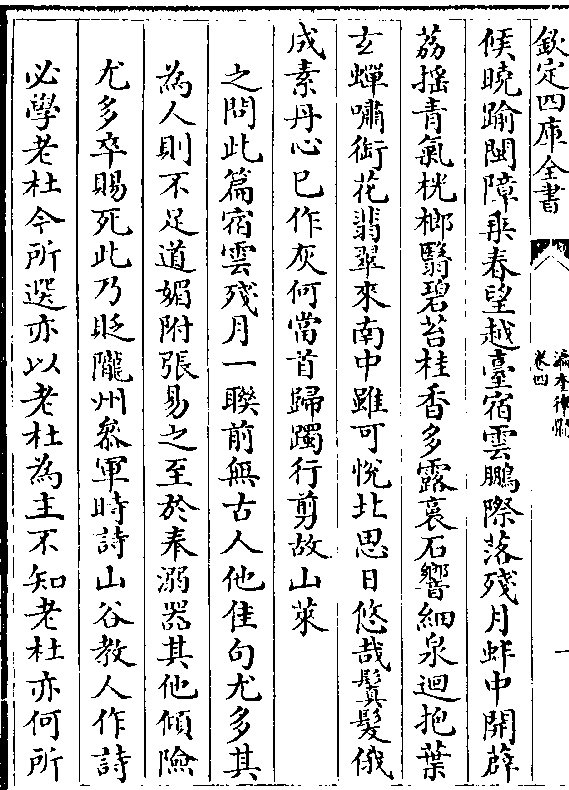 欽定四庫全書
瀛奎律髓
卷四
一
候曉踰閩障乗春望越臺宿雲鵬際落殘月蚌中開薜
荔摇青氣桄榔翳碧苔桂香多露裛石響細泉迴抱葉
玄蟬嘯銜花翡翠來南中雖可恱北思日悠哉鬒髮俄
成素丹心已作灰何當首歸躅行剪故山萊
之問此篇宿雲殘月一聨前無古人他佳句尤多其
為人則不足道媚附張易之至於奉溺器其他傾險
尤多卒賜死此乃貶隴州叅軍時詩山谷教人作詩
必學老杜今所選亦以老杜為主不知老杜亦何所